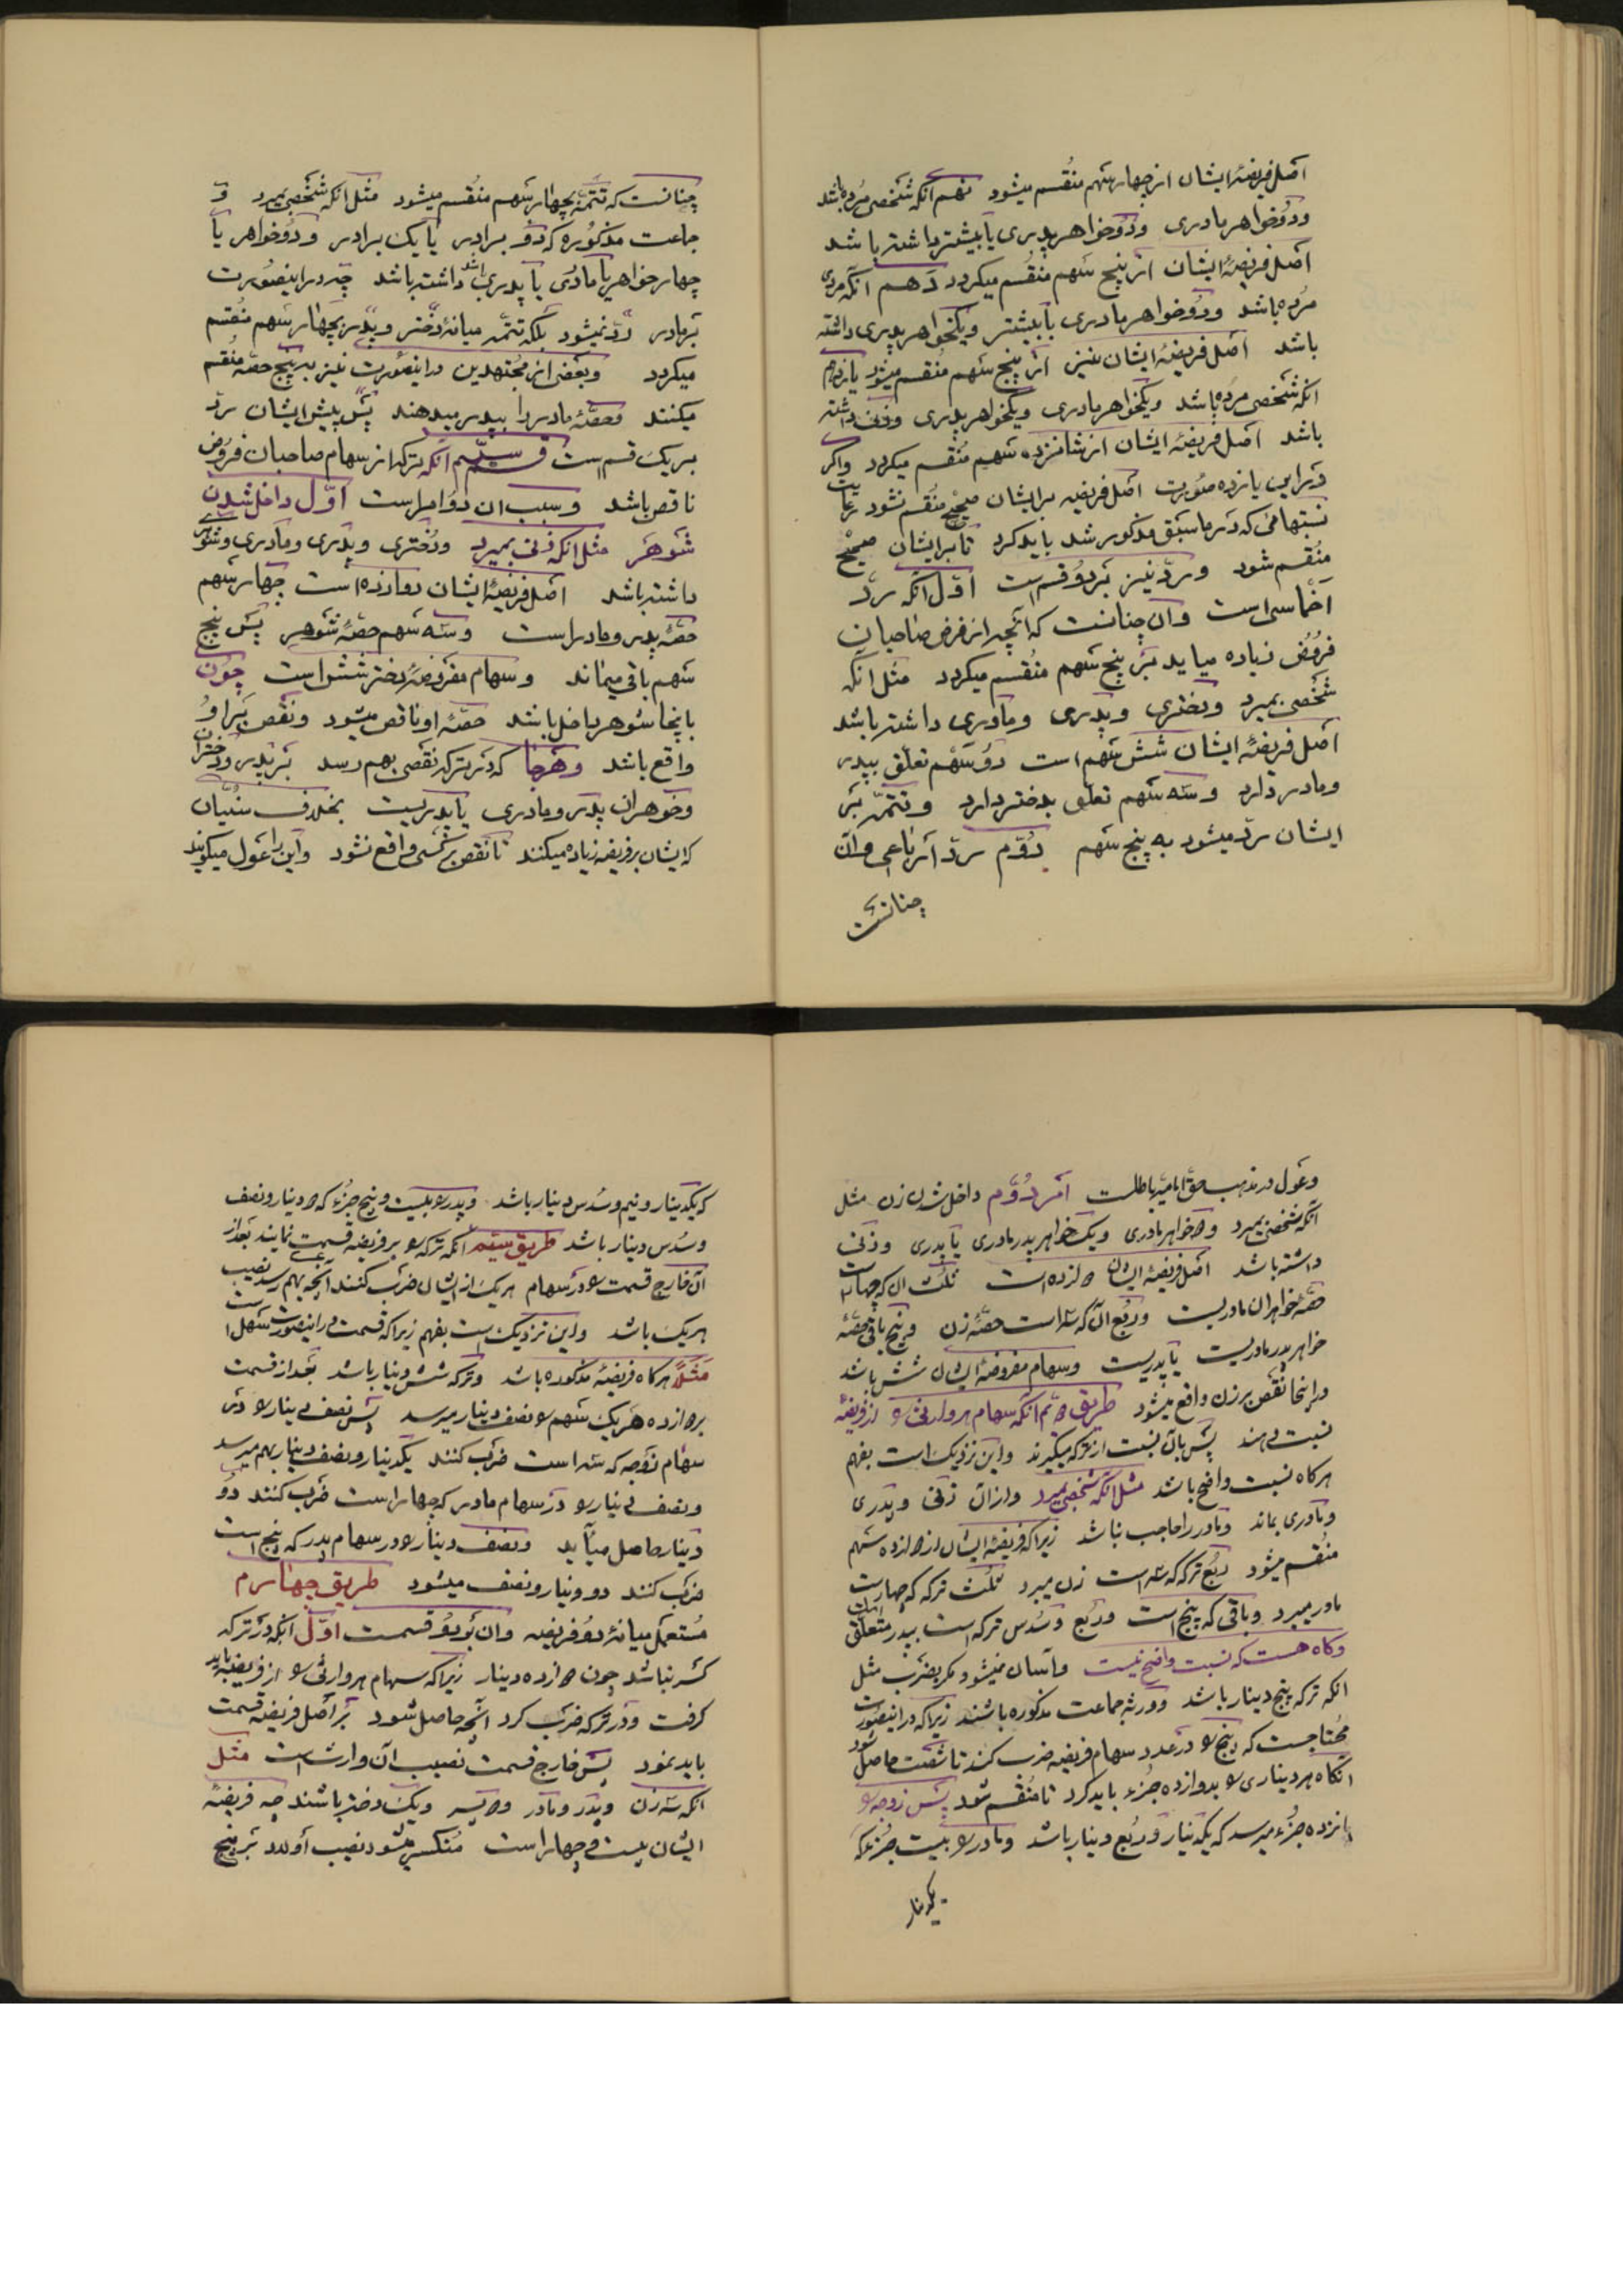 اصل فریضهٔ ایشان از چهار سهم منقسم میشود نهم آنکه شخصی مرده باشد
ودو خواهر مادری ودو خواهر پدری یا بیشتر داشته باشد
اصل فریضهٔ ایشان از پنج سهم منقسم میکردد دهم آنکه مردی
مرده باشد ودو خواهر مادری یا بیشتر ویکخواهر پدری داشته
باشد اصل فریضهٔ ایشان نیز از پنج سهم منقسم میشود یازدهم
آنکه شخصی مرده باشد ویکخواهر مادری ویکخواهر پدری وزنی داشته
باشد اصل فریضهٔ ایشان از شانزده سهم منقسم میکردد واکر
در این پانزده صورت اصل فریضه بر ایشان صحیح منقسم نشود رعایت
نسبتهائی که در ما سبق مذکور شد باید کرد تا بر ایشان صحیح
منقسم شود وردّ نیز بر دو قسمست اوّل آنکه ردّ
اخماسی است وآن چنانست که آنچه از فرض صاحبان
فروض زیاده میاید بر پنج سهم منقسم میکردد مثل آنکه
شخصی بمیرد ودختری وپدری ومادری داشته باشد
اصل فریضهٔ ایشان شش سهم است دو سهم تعلّق بپدر
ومادر دارد وسه سهم تعلق بدختر دارد وتتمّه بر
ایشان ردّ میشود به پنج سهم دوّم ردّ ارباعی وآن
چنانست
چنانست که تتمّه بچهار سهم منقسم میشود مثل آنکه شخصی بمیرد و
جماعت مذکوره که دو برادر یا یک برادر ودو خواهر یا
چهار خواهر یا مادری یا پدری باشد داشته باشد چه در اینصورت
بر مادر ردّ نمیشود بلکه تتمّه میانهٔ دختر وپدر بچهار سهم منقسم
میکردد وبعضی از مجتهدین در اینصورت نیز به پنج حصّه منقسم
میکنند وحصّهٔ مادر را بپدر میدهند پس پیش ایشان ردّ
بر یک قسم است قسم سیّم آنکه ترکه از سهام صاحبان فروض
ناقص باشد وسبب ان دو امر است اوّل داخل شدن
شوهر مثل آنکه زنی بمیرد ودختری وپدری ومادری وشوهری
داشته باشد اصل فریضهٔ ایشان دوازده است چهار سهم
حصّهٔ پدر ومادر است وسه سهم حصّهٔ شوهر پس پنج
سهم باقی میماند وسهام مفروضهٔ دختر شش است چون
باینجا شوهر داخل باشد حصّهٔ او ناقص میشود ونقص بر او
واقع باشد وهرجا که در ترکه نقصی بهم رسد بر پدر ودختران
وخوهران پدر ومادری یا پدریست بخلاف سنّیان
که ایشان بر فریضه زیاده میکنند تا نقص بر کسی واقع نشود واین را عول میکویند
وعول در مذهب حقّ امامیّه باطلست امر دوّم داخل شدن زن مثل
آنکه شخصی بمیرد و۲خواهر مادری ویک خواهر پدر مادری یا پدری وزنی
داشته باشد اصل فریضهٔ ایشان ۲ازده است ثلث آن که چهار است
حصّهٔ خواهران مادریست وربع آن که سه است حصّهٔ زن وپنج باقی حصّهٔ
خواهر پدر مادریست یا پدریست وسهام مفروضهٔ ایشان شش باشد
در اینجا نقص بر زن واقع میشود طریق ۲م آنکه سهام هر وارثی را از فریضه
نسبت دهند پس بآن نسبت از ترکه میکیرند واین نزدیک است بفهم
هرکاه نسبت واضح باشد مثل آنکه شخصی بمیرد واز آن زنی وپدری
ومادری بماند ومادر را حاجب نباشد زیرا که فریضهٔ ایشان از ۲ازده سهم
منقسم میشود ربع ترکه که سه است زن میبرد ثلث ترکه که چهار است
مادر میبرد وباقی که پنج است وربع وسدس ترکه است بپدر متعلّق است
وکاه هست که نسبت واضح نیست وآسان نمیشود مکر بضرب مثل
آنکه ترکه پنج دینار باشد وورثه جماعت مذکوره باشند زیرا که در اینصورت
محتاجست که پنج را در عدد سهام فریضه ضرب کنند تا شصت حاصل شود
آنکاه هر دیناری را بدوازده جزء باید کرد تا منقسم شود پس زوجه را
پانزده جزء میرسد که یکدینار وربع دینار باشد ومادر را بیست جزء که
یکدینار
که یکدینار ونیم وسدس دینار باشد وپدر را بیست وپنج جزء که ۲ دینار ونصف
وسدس دینار باشد طریق سیّم آنکه ترکه را بر فریضه قسمت نمایند بعد از
آن خارج قسمت را در سهام هر یک از ایشان ضرب کنند آنچه بهم رسد نصیب
هر یک باشد واین نزدیک است بفهم زیرا که قسمت در اینصورت سهل است
مثلاً هرکاه فریضهٔ مذکوره باشد وترکه شش دینار باشد بعد از قسمت
بر ۲ازده هر یک سهم را نصف دینار میرسد پس نصف دینار را در
سهام زوجه که سه است ضرب کنند یکدینار ونصف دینار بهم میرسد
ونصف دینار را در سهام مادر که چهار است ضرب کنند دو
دینار حاصل میآید ونصف دینار را در سهام پدر که پنج است
ضرب کنند دو دینار ونصف میشود طریق چهارم
مستعمل میانهٔ دو فریضه وان بر دو قسمست اوّل آنکه در ترکه
کسر نباشد چون ۲ازده دینار زیرا که سهام هر وارثی را از فریضه باید
کرفت ودر ترکه ضرب کرد آنچه حاصل شود بر اصل فریضه قسمت
باید نمود پس خارج قسمت نصیب آن وارث است مثل
آنکه سه زن وپدر ومادر و۲ پسر ویک دختر باشند چه فریضهٔ
ایشان بیست وچهار است منکسر میشود نصیب اولاد بر پنج